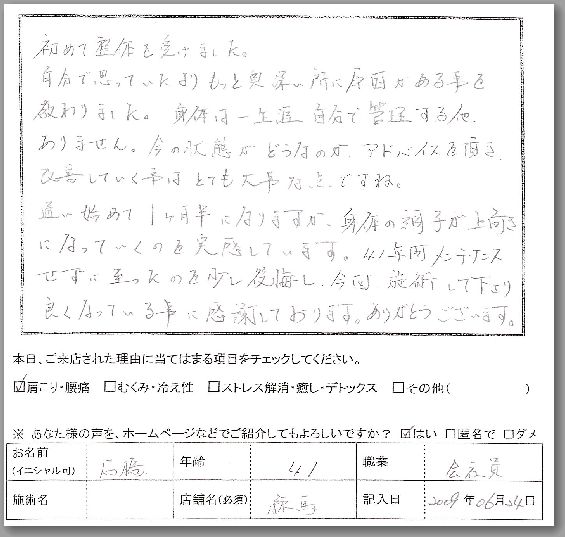 初めて整体を受けました。
自分で思っていたよりもっと奥深い所に原因がある事を
教わりました。身体は一生涯自分で管理する他、
ありません。今の状態がどうなのか、アドバイスを頂き、
改善していく事はとても大事な点ですね。
通い始めて1ヶ月半になりますが、身体の調子が上向き
になっていくのを実感しています。41年間メンテナンス
せずに至ったのを少し後悔し、今回施術して下より
良くなっている事に感謝しております。ありがとうございます。
本日、ご来店された理由に当てはまる項目をチェックしてください。
☑肩こり・腰痛 □むくみ・冷え性 □ストレス解消・癒し・デトックス □その他( )
※ あなた様の声を、ホームページなどでご紹介してもよろしいですか? ☑はい □匿名で □ダメ
お名前 高橋 年齢 41 職業 会社員
(イニシャル可)
施術名 店舗名(必須) 練馬 記入日 2009年06月24日